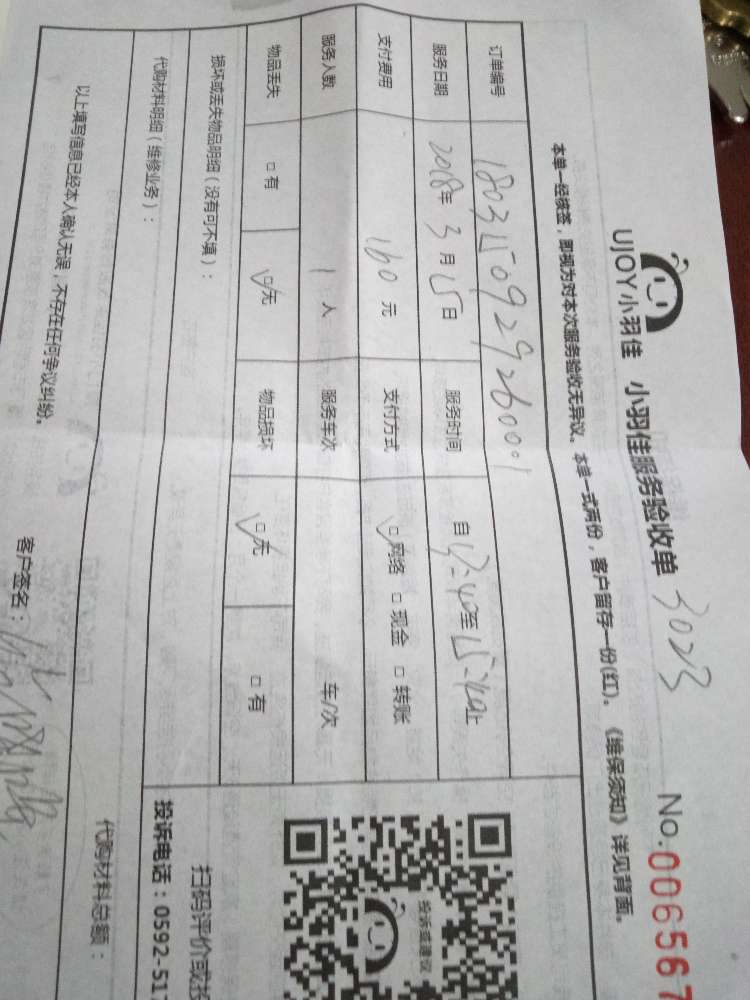 UJOY小羽佳 小羽佳服务验收单 3023 No:006567
本单一经核签，即视为对本次服务验收无异议。本单一式两份，客户留存一份(红)。《维保须知》详见背面。
订单编号 1803150929260001
服务日期 2018年3月15日 服务时间 自13:40至15:40止
支付费用 160元 支付方式 ☑网络 □现金 □转账
服务人数 1人 服务车次 车/次
物品丢失 □有 ☑无 物品损坏 ☑无 □有
损坏或丢失物品明细（没有可不填）：
代购材料明细（维修业务）：
代购材料总额：
以上填写信息已经本人确认无误，不存在任何争议纠纷。
客户签名：
投诉或建议
扫码评价或投
投诉电话：0592-517